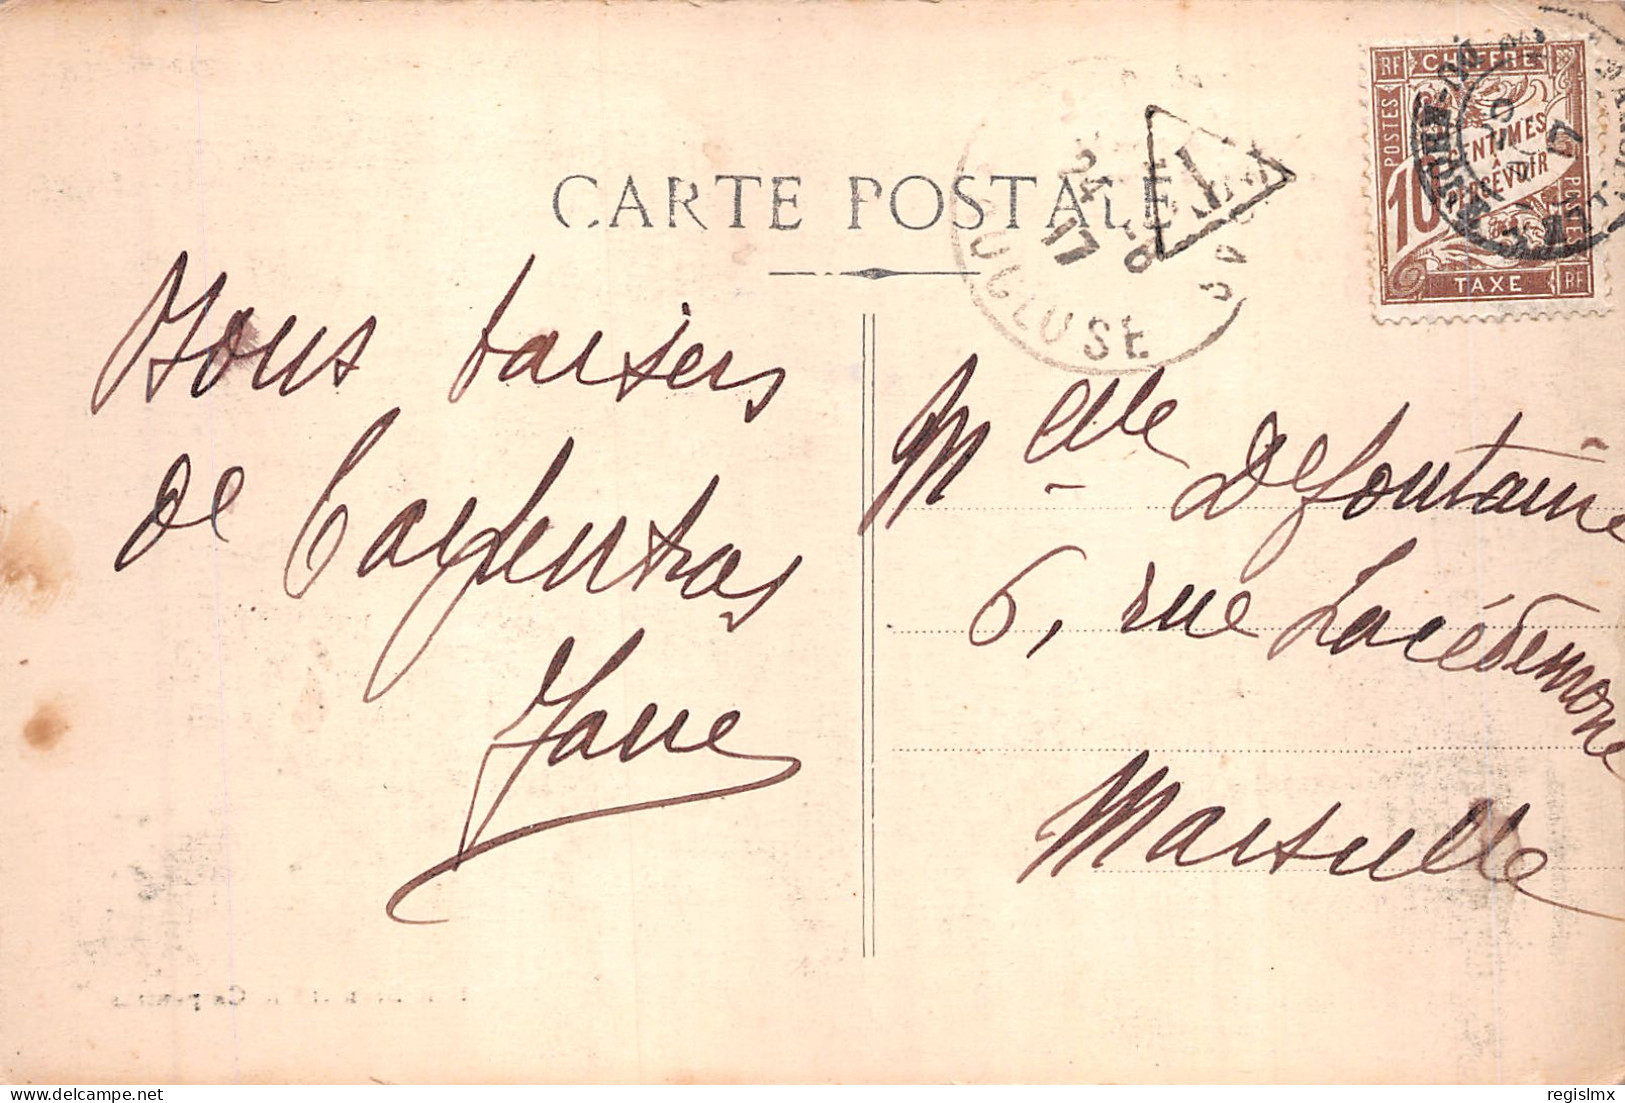 CARTE POSTALE
Bons baisers
de Carpentras
Jane
Melle Defontaine
6, rue Lacédémone
Marseille
RF CHIFFRE
POSTES
10 CENTIMES
À
PERCEVOIR
TAXE RF
T
24 -8
17
VAUCLUSE
regislmx